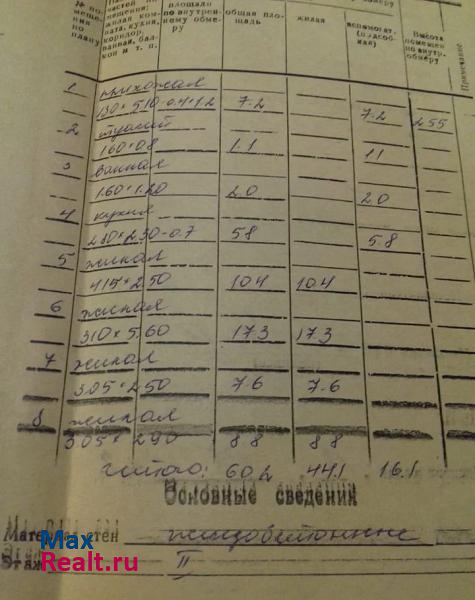 № по
меще-
нию
по
плану
жилая ком-
ната, кухня,
коридор,
ванная, бал-
кон и т. п.
площади
по внутрен-
нему обме-
ру
общая пло-
щадь
жилая
вспомогат.
(подсоб-
ная)
Высота
помещен.
по внутр.
обмеру
Примечание
1 прихожая
130 × 510 - 0.4 × 1.2 7.2 7.2 255
2 туалет
160 × 0.8 1.1 1.1
3 ванная
1.60 × 1.20 2.0 2.0
4 кухня
280 × 230 - 0.7 5.8 5.8
5 жилая
415 × 250 10.4 10.4
6 жилая
310 × 5.60 17.3 17.3
7 жилая
3.05 × 250 7.6 7.6
8 жилая
3.05 × 290 8.8 8.8
Итого: 60.2 44.1 16.1
Основные сведения
Материал стен железобетонные
Этаж II
Max
Realt.ru